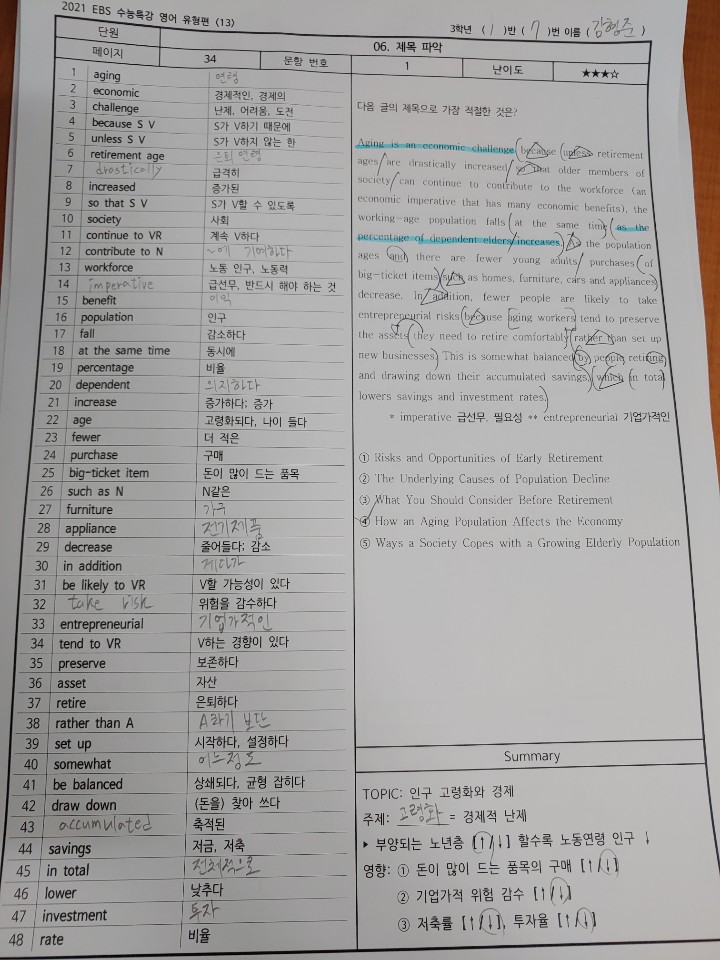 2021 EBS 수능특강 영어 유형편 (13)
3학년 ( 1 )반 ( 7 )번 이름 ( 김형준 )
단원 06. 제목 파악
페이지 34 문항 번호 1 난이도 ★★★☆
1 aging 연령
2 economic 경제적인, 경제의
3 challenge 난제, 어려움, 도전
4 because S V S가 V하기 때문에
5 unless S V S가 V하지 않는 한
6 retirement age 은퇴 연령
7 drastically 급격히
8 increased 증가된
9 so that S V S가 V할 수 있도록
10 society 사회
11 continue to VR 계속 V하다
12 contribute to N ~에 기여하다
13 workforce 노동 인구, 노동력
14 imperative 급선무, 반드시 해야 하는 것
15 benefit 이익
16 population 인구
17 fall 감소하다
18 at the same time 동시에
19 percentage 비율
20 dependent 의지하다
21 increase 증가하다; 증가
22 age 고령화되다, 나이 들다
23 fewer 더 적은
24 purchase 구매
25 big-ticket item 돈이 많이 드는 품목
26 such as N N같은
27 furniture 가구
28 appliance 전기제품
29 decrease 줄어들다; 감소
30 in addition 게다가
31 be likely to VR V할 가능성이 있다
32 take risk 위험을 감수하다
33 entrepreneurial 기업가적인
34 tend to VR V하는 경향이 있다
35 preserve 보존하다
36 asset 자산
37 retire 은퇴하다
38 rather than A A라기 보단
39 set up 시작하다, 설정하다
40 somewhat 어느정도
41 be balanced 상쇄되다, 균형 잡히다
42 draw down (돈을) 찾아 쓰다
43 accumulated 축적된
44 savings 저금, 저축
45 in total 전체적으로
46 lower 낮추다
47 investment 투자
48 rate 비율
다음 글의 제목으로 가장 적절한 것은?
Aging is an economic challenge because unless retirement
ages are drastically increased so that older members of
society can continue to contribute to the workforce (an
economic imperative that has many economic benefits), the
working-age population falls at the same time as the
percentage of dependent elders increases. As the population
ages and there are fewer young adults, purchases of
big-ticket items such as homes, furniture, cars and appliances
decrease. In addition, fewer people are likely to take
entrepreneurial risks because aging workers tend to preserve
the assets they need to retire comfortably rather than set up
new businesses. This is somewhat balanced by people retiring
and drawing down their accumulated savings, which in total
lowers savings and investment rates.
* imperative 급선무, 필요성 ** entrepreneurial 기업가적인
① Risks and Opportunities of Early Retirement
② The Underlying Causes of Population Decline
③ What You Should Consider Before Retirement
④ How an Aging Population Affects the Economy
⑤ Ways a Society Copes with a Growing Elderly Population
Summary
TOPIC: 인구 고령화와 경제
주제: 고령화 = 경제적 난제
▸ 부양되는 노년층 [↑/↓] 할수록 노동연령 인구 ↓
영향: ① 돈이 많이 드는 품목의 구매 [↑/↓]
② 기업가적 위험 감수 [↑/↓]
③ 저축률 [↑/↓], 투자율 [↑/↓]